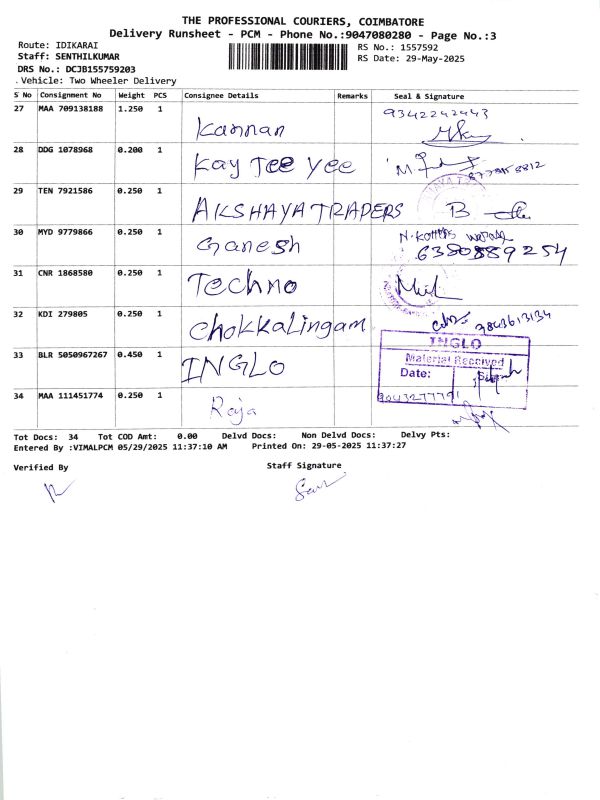 THE PROFESSIONAL COURIERS, COIMBATORE
Delivery Runsheet - PCM - Phone No.:9047080280 - Page No.:3
Route: IDIKARAI
RS No.: 1557592
Staff: SENTHILKUMAR
RS Date: 29-May-2025
DRS No.: DCJB155759203
Vehicle: Two Wheeler Delivery
S No Consignment No Weight PCS Consignee Details Remarks Seal & Signature
27 MAA 709138188 1.250 1 Kannan 9342242443
28 DDG 1078968 0.200 1 Kay Tee Yee
29 TEN 7921586 0.250 1 AKSHAYA TRADERS
30 MYD 9779866 0.250 1 Ganesh 6380889254
31 CNR 1868580 0.250 1 Techno
32 KDI 279805 0.250 1 Chokkalingam 9843613134
33 BLR 5050967267 0.450 1 INGLO
INGLO
Material Received
Date:
9043277791
34 MAA 111451774 0.250 1 Raja
Tot Docs: 34 Tot COD Amt: 0.00 Delvd Docs: Non Delvd Docs: Delvy Pts:
Entered By :VIMALPCM 05/29/2025 11:37:10 AM Printed On: 29-05-2025 11:37:27
Verified By Staff Signature